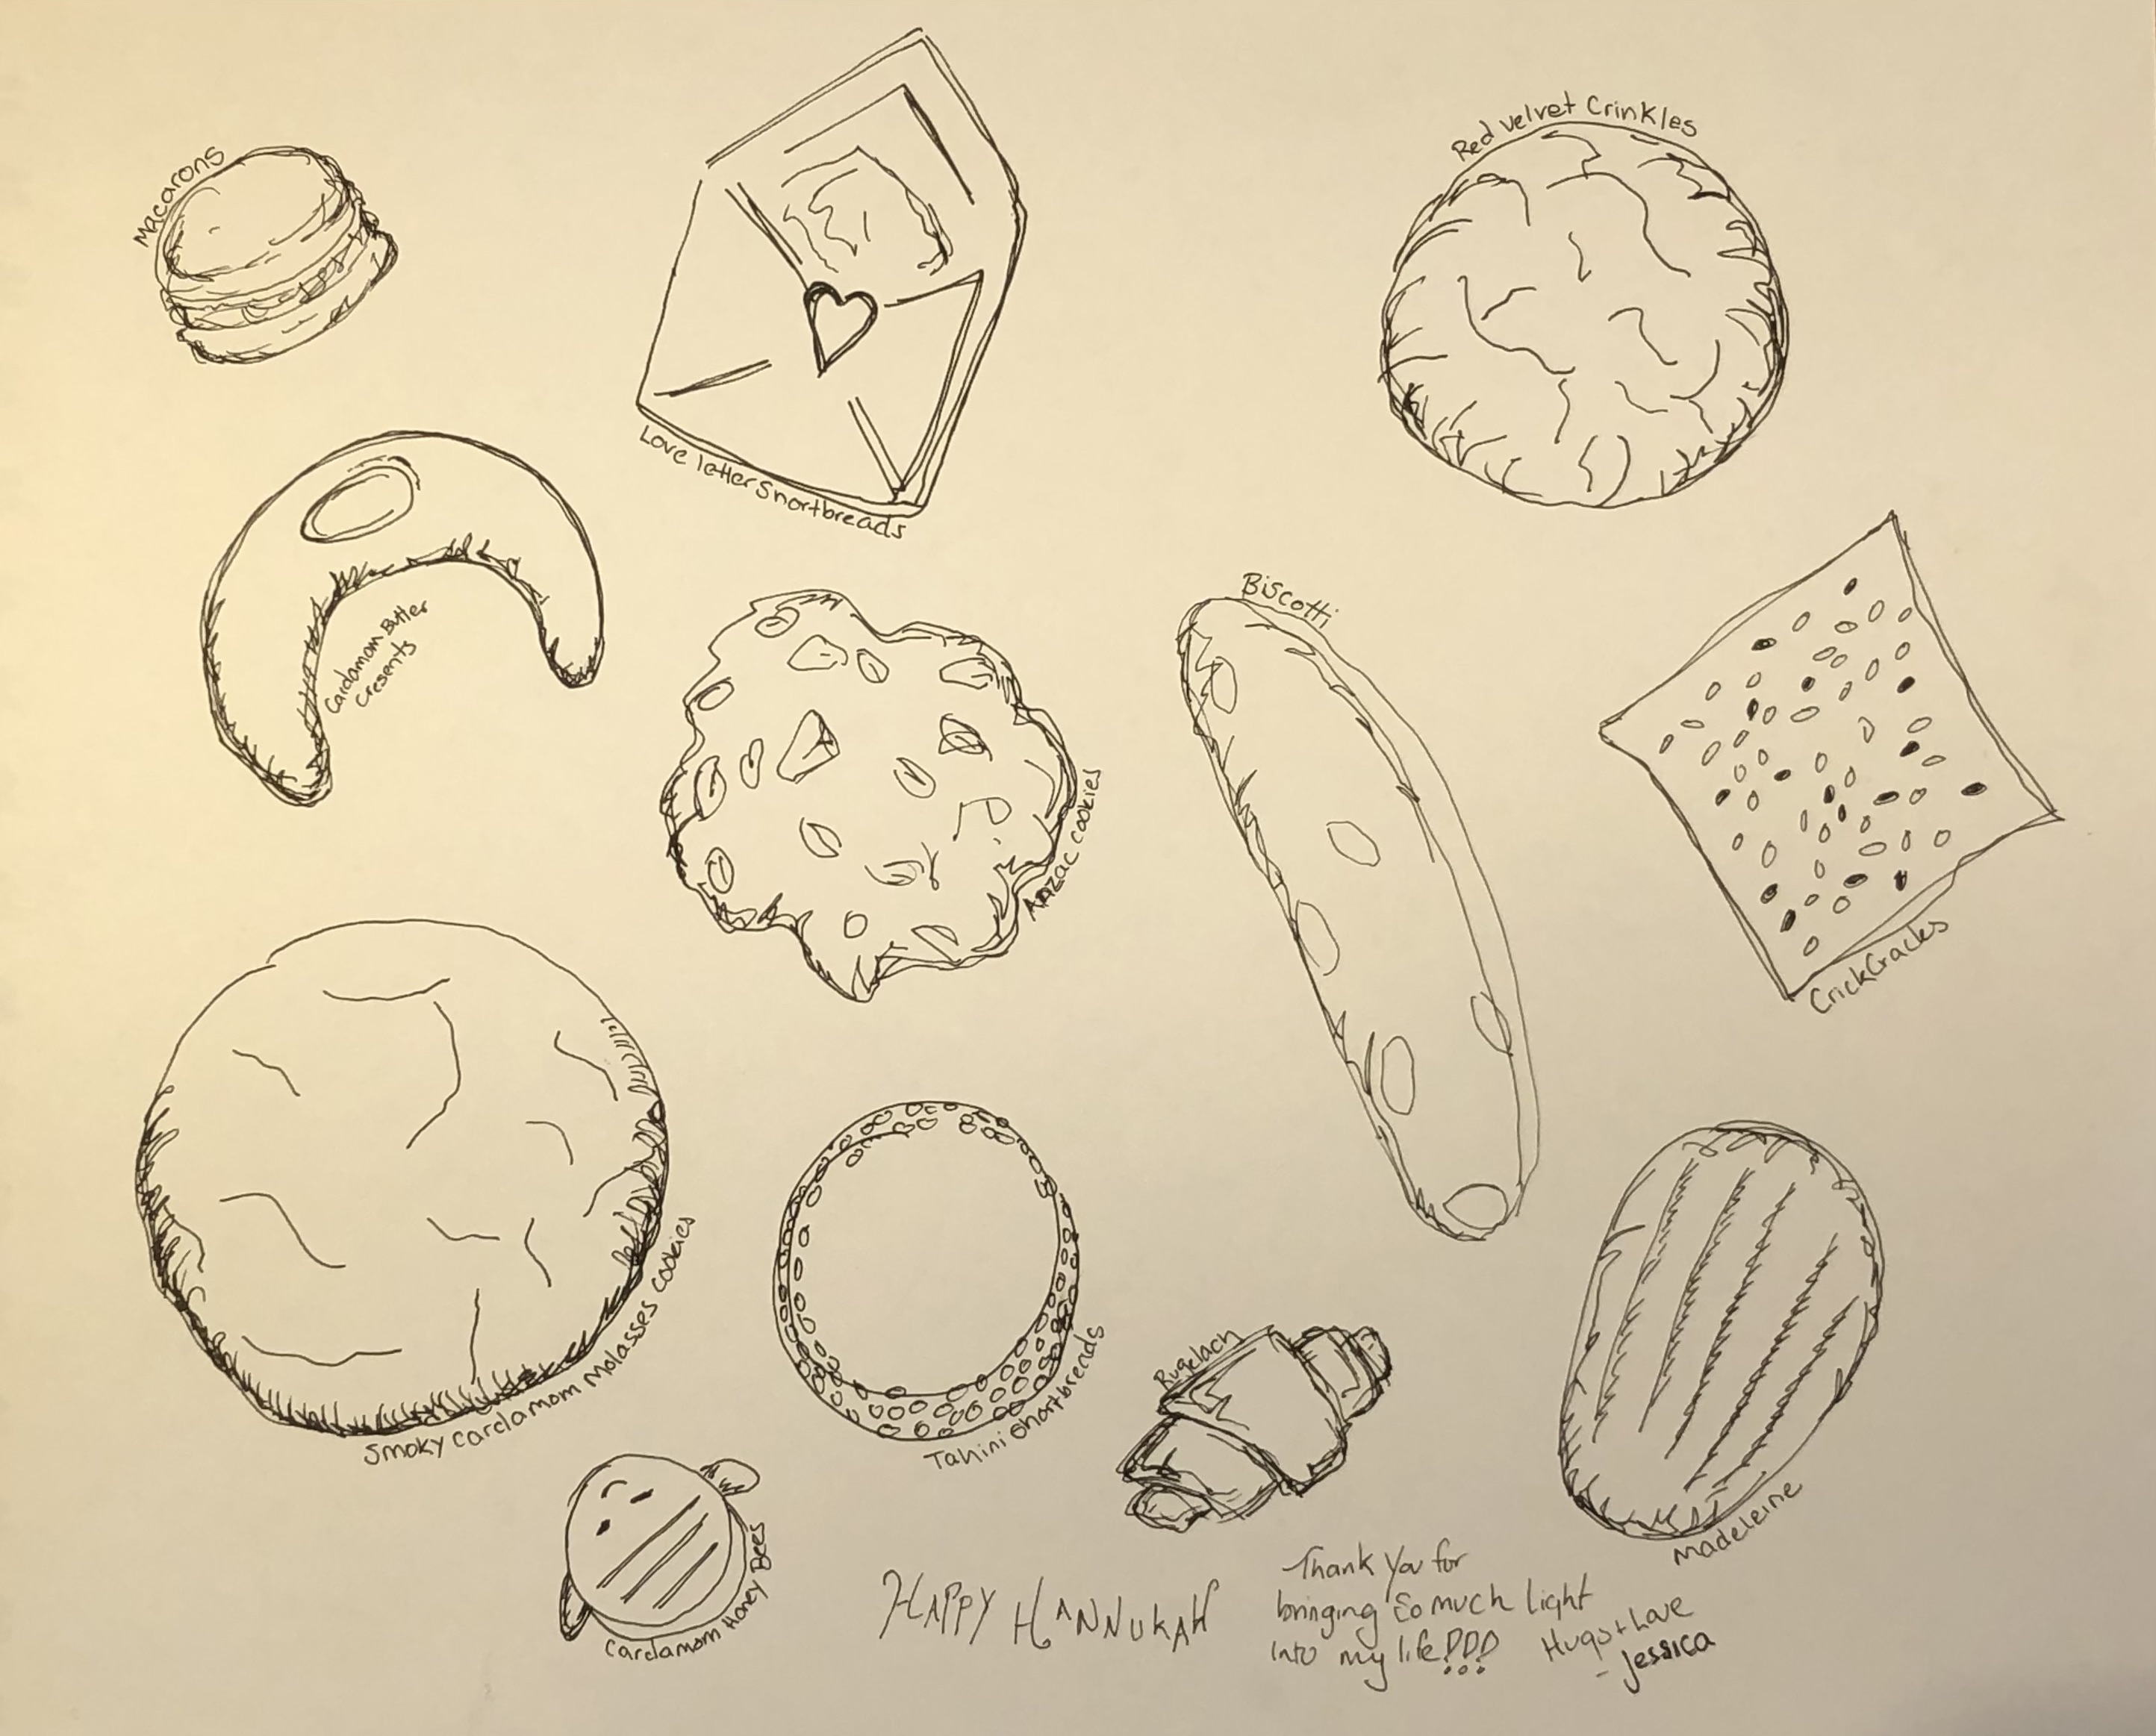 Macarons
Love letter Shortbreads
Red Velvet Crinkles
Cardamom Butter
Cresents
Anzac Cookies
Biscotti
CrickCracks
Smoky Cardamom Molasses Cookies
Tahini Shortbreads
Rugelach
Madeleine
Cardamom Honey Bees
HAPPY HANNUKAH
Thank you for
bringing so much light
into my life!!!
Hugs + Love
- Jessica